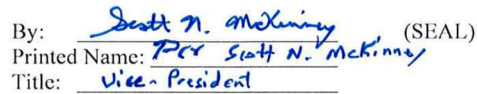 By: Scott N. McKinney (SEAL)
Printed Name: Per Scott N. McKinney
Title: Vice-President